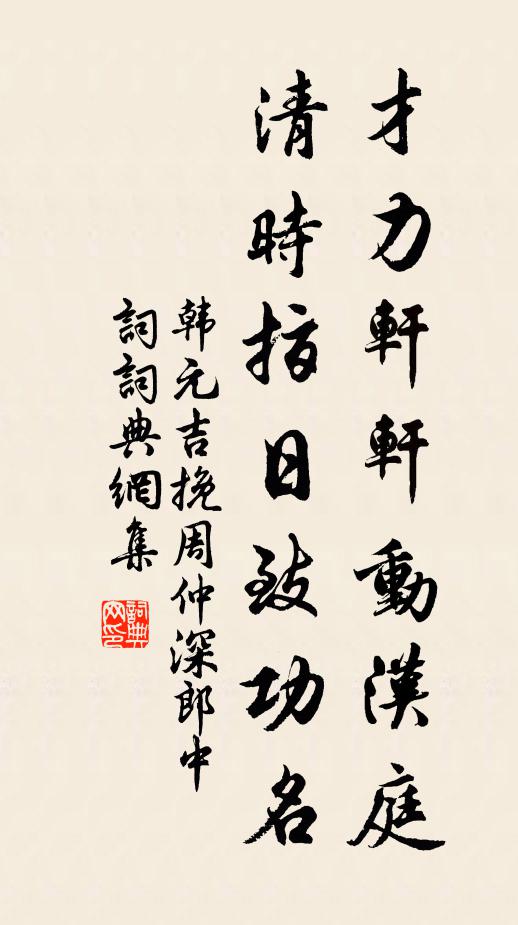 才力軒軒動漢庭
清時指日致功名
韩元吉挽周仲深郎中
詞詞典網集
詞典网印